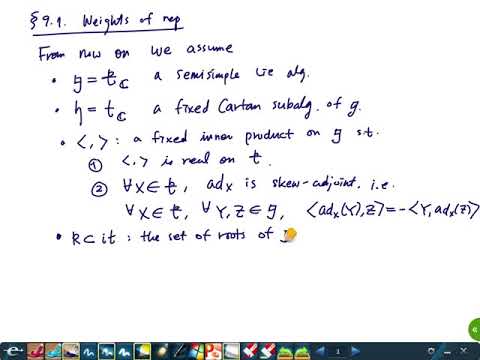 § 9.1. Weights of rep
From now on we assume
• 𝔤 = 𝔨_ℂ a semisimple Lie alg.
• 𝔥 = 𝔱_ℂ a fixed Cartan subalg. of 𝔤.
• < , > : a fixed inner product on 𝔤 s.t.
① < , > is real on 𝔨.
② ∀X∈𝔨, ad_X is skew-adjoint. i.e.
∀X∈𝔨, ∀Y,Z∈𝔤, <ad_X(Y),Z>=-<Y,ad_X(Z)>
• R⊂i𝔱 : the set of roots of
1
«